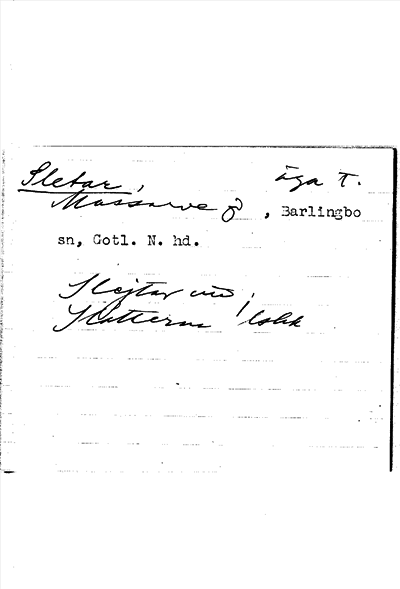 Sletar, äga T.
Massarve g, Barlingbo
sn, Gotl. N. hd.
Slejtar
Slätterna